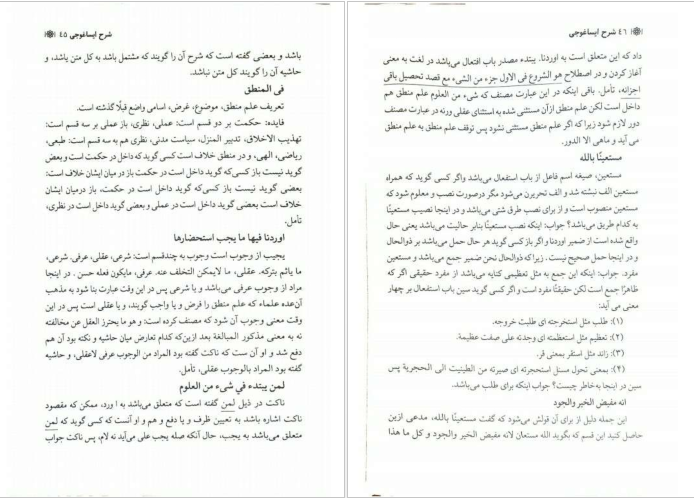 شرح ایساغوجی ٤٥
باشد و بعضی گفته است که شرح آن را گویند که مشتمل باشد به کل متن باشد، و
حاشیه آن را گویند کل متن نباشد.
فی المنطق
تعریف علم منطق، موضوع، غرض، اسامی واضع قبلًا گذشته است.
فایده: حکمت بر دو قسم است: عملی، نظری، باز عملی بر سه قسم است:
تهذیب الاخلاق، تدبیر المنزل، سیاست مدنی، نظری هم به سه قسم است: طبعی،
ریاضی، الهی، و در منطق خلاف است کسی گوید که داخل در حکمت است و بعض
گوید نیست باز کسی که گوید داخل است در حکمت باز در میان ایشان خلاف است:
بعضی گوید نیست باز کسی‌که گوید داخل است در حکمت، باز درمیان ایشان
خلاف است بعضی گوید داخل است در عملی و بعضی گوید داخل است در نظری،
تأمل.
اوردنا فیها ما یجب استحضارها
یجیب از وجوب است وجوب به چندقسم است: شرعی، عقلی، عرفی. شرعی،
ما یاثم بترکه. عقلی، ما لایمکن التخلف عنه. عرفی، مایکون فعله حسن. در اینجا
مراد از وجوب عرفی می‌باشد و یا شرعی پس در این وقت عبارت بنا شود به مذهب
آن‌عده علماء که علم منطق را فرض و یا واجب گویند، و یا عقلی است پس در این
وقت معنی وجوب آن شود که مصنف کرده است: و هو ما یحترز العقل عن مخالفته
نه به معنی مذکور المبالغة بعد ازین‌که کدام تعارض میان حاشیه و نکته بود آن هم
دفع شد و او آن ست که ناکت گفته بود المراد من الوجوب عرفی لاعقلی، و حاشیه
گفته بود المراد بالوجوب عقلی، تأمل.
لمن یبتدء فی شیء من العلوم
ناکت در ذیل لمن گفته است که متعلق می‌باشد به اورد، ممکن که مقصود
ناکت اشاره باشد به تعیین ظرف و یا دفع و هم و او آنست که کسی گوید که لمن
متعلق می‌باشد به یجب، حال آنکه صله یجب علی می‌آید نه لام، پس ناکت جواب
٤٦ شرح ایساغوجی
داد که این متعلق است به اوردنا. یبتدء مصدر باب افتعال می‌باشد در لغت به معنی
آغاز کردن و در اصطلاح هو الشروع فی الاول جزء من الشیء مع قصد تحصیل باقی
اجزائه، تأمل. باقی اینکه در این عبارت مصنف که شیء من العلوم علم منطق هم
داخل است لکن علم منطق ازآن مستثنی شده به استثنای عقلی ورنه در عبارت مصنف
دور لازم شود زیرا که اگر علم منطق مستثنی نشود پس توقف علم منطق به علم منطق
می آید و ماهی الا الدور.
مستعینًا بالله
مستعین، صیغه اسم فاعل از باب استفعال می‌باشد واگر کسی گوید که همراه
مستعین الف نبشته شد و الف تحریرن می‌شود مگر درصورت نصب و معلوم شود که
مستعین منصوب است و از برای نصب طرق شتی می‌باشد و در اینجا نصیب مستعینًا
به کدام طریق می‌باشد؟ جواب: اینکه نصب مستعینًا بنابر حالیت می‌باشد یعنی حال
واقع شده است از ضمیر اوردنا و اگر باز کسی گوید هر حال حمل می‌باشد بر ذوالحال
و در اینجا حمل صحیح نیست. زیرا که ذوالحال نحن ضمیر جمع می‌باشد و مستعین
مفرد. جواب: اینکه این جمع به مثل تعظیمی کنایه می‌باشد از مفرد حقیقی اگر که
ظاهرًا جمع است لکن حقیقتًا مفرد است و اگر کسی گوید سین باب استفعال بر چهار
معنی می آید:
(١): طلب مثل استخرجته ای طلبت خروجه.
(٢): تعظیم مثل استعظمته ای وجدته علی صفت عظیمة.
(٣): زائد مثل استقر بمعنی قر.
(٤): بمعنی تحول مسئل استحجرته ای صیرته من الطینیت الی الحجریة پس
سین در اینجا به‌خاطر چیست؟ جواب اینکه برای طلب می‌باشد.
انه مفیض الخیر والجود
این جمله دلیل از برای آن قولش می‌شود که گفت مستعینًا بالله، مدعی ازین
حاصل کنید این قسم که بگوید الله مستعان لانه مفیض الخیر والجود و کل ما هذا